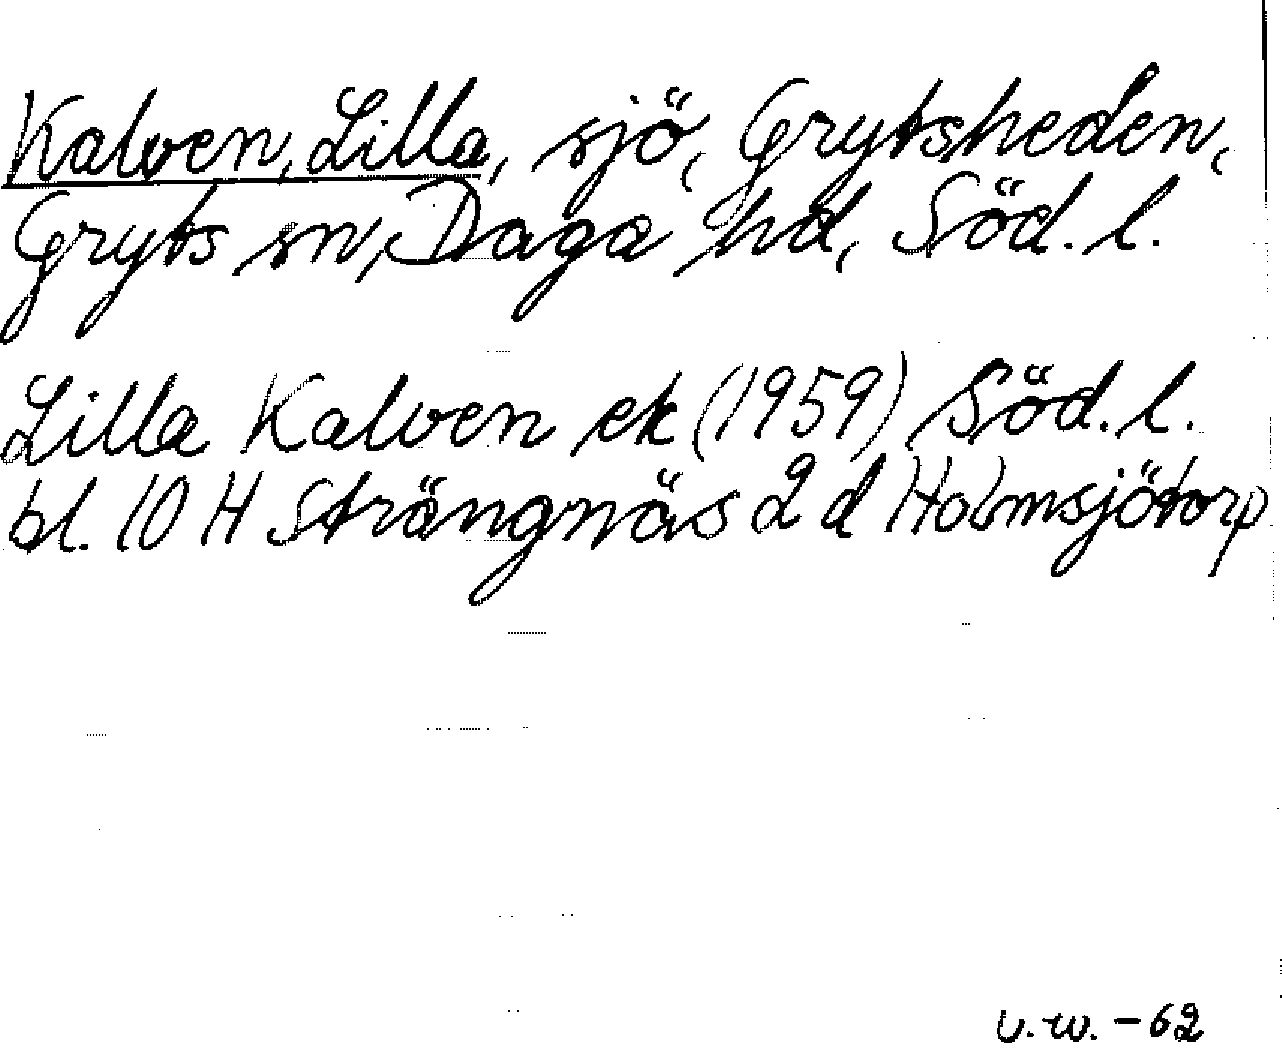 Kalven, Lilla, sjö, Grytsheden,
Gryts sn, Daga hd, Söd. l.
Lilla Kalven ek (1959) Söd. l.
bl. 10 H Strängnäs 2 d Holmsjötorp
v.w. - 62